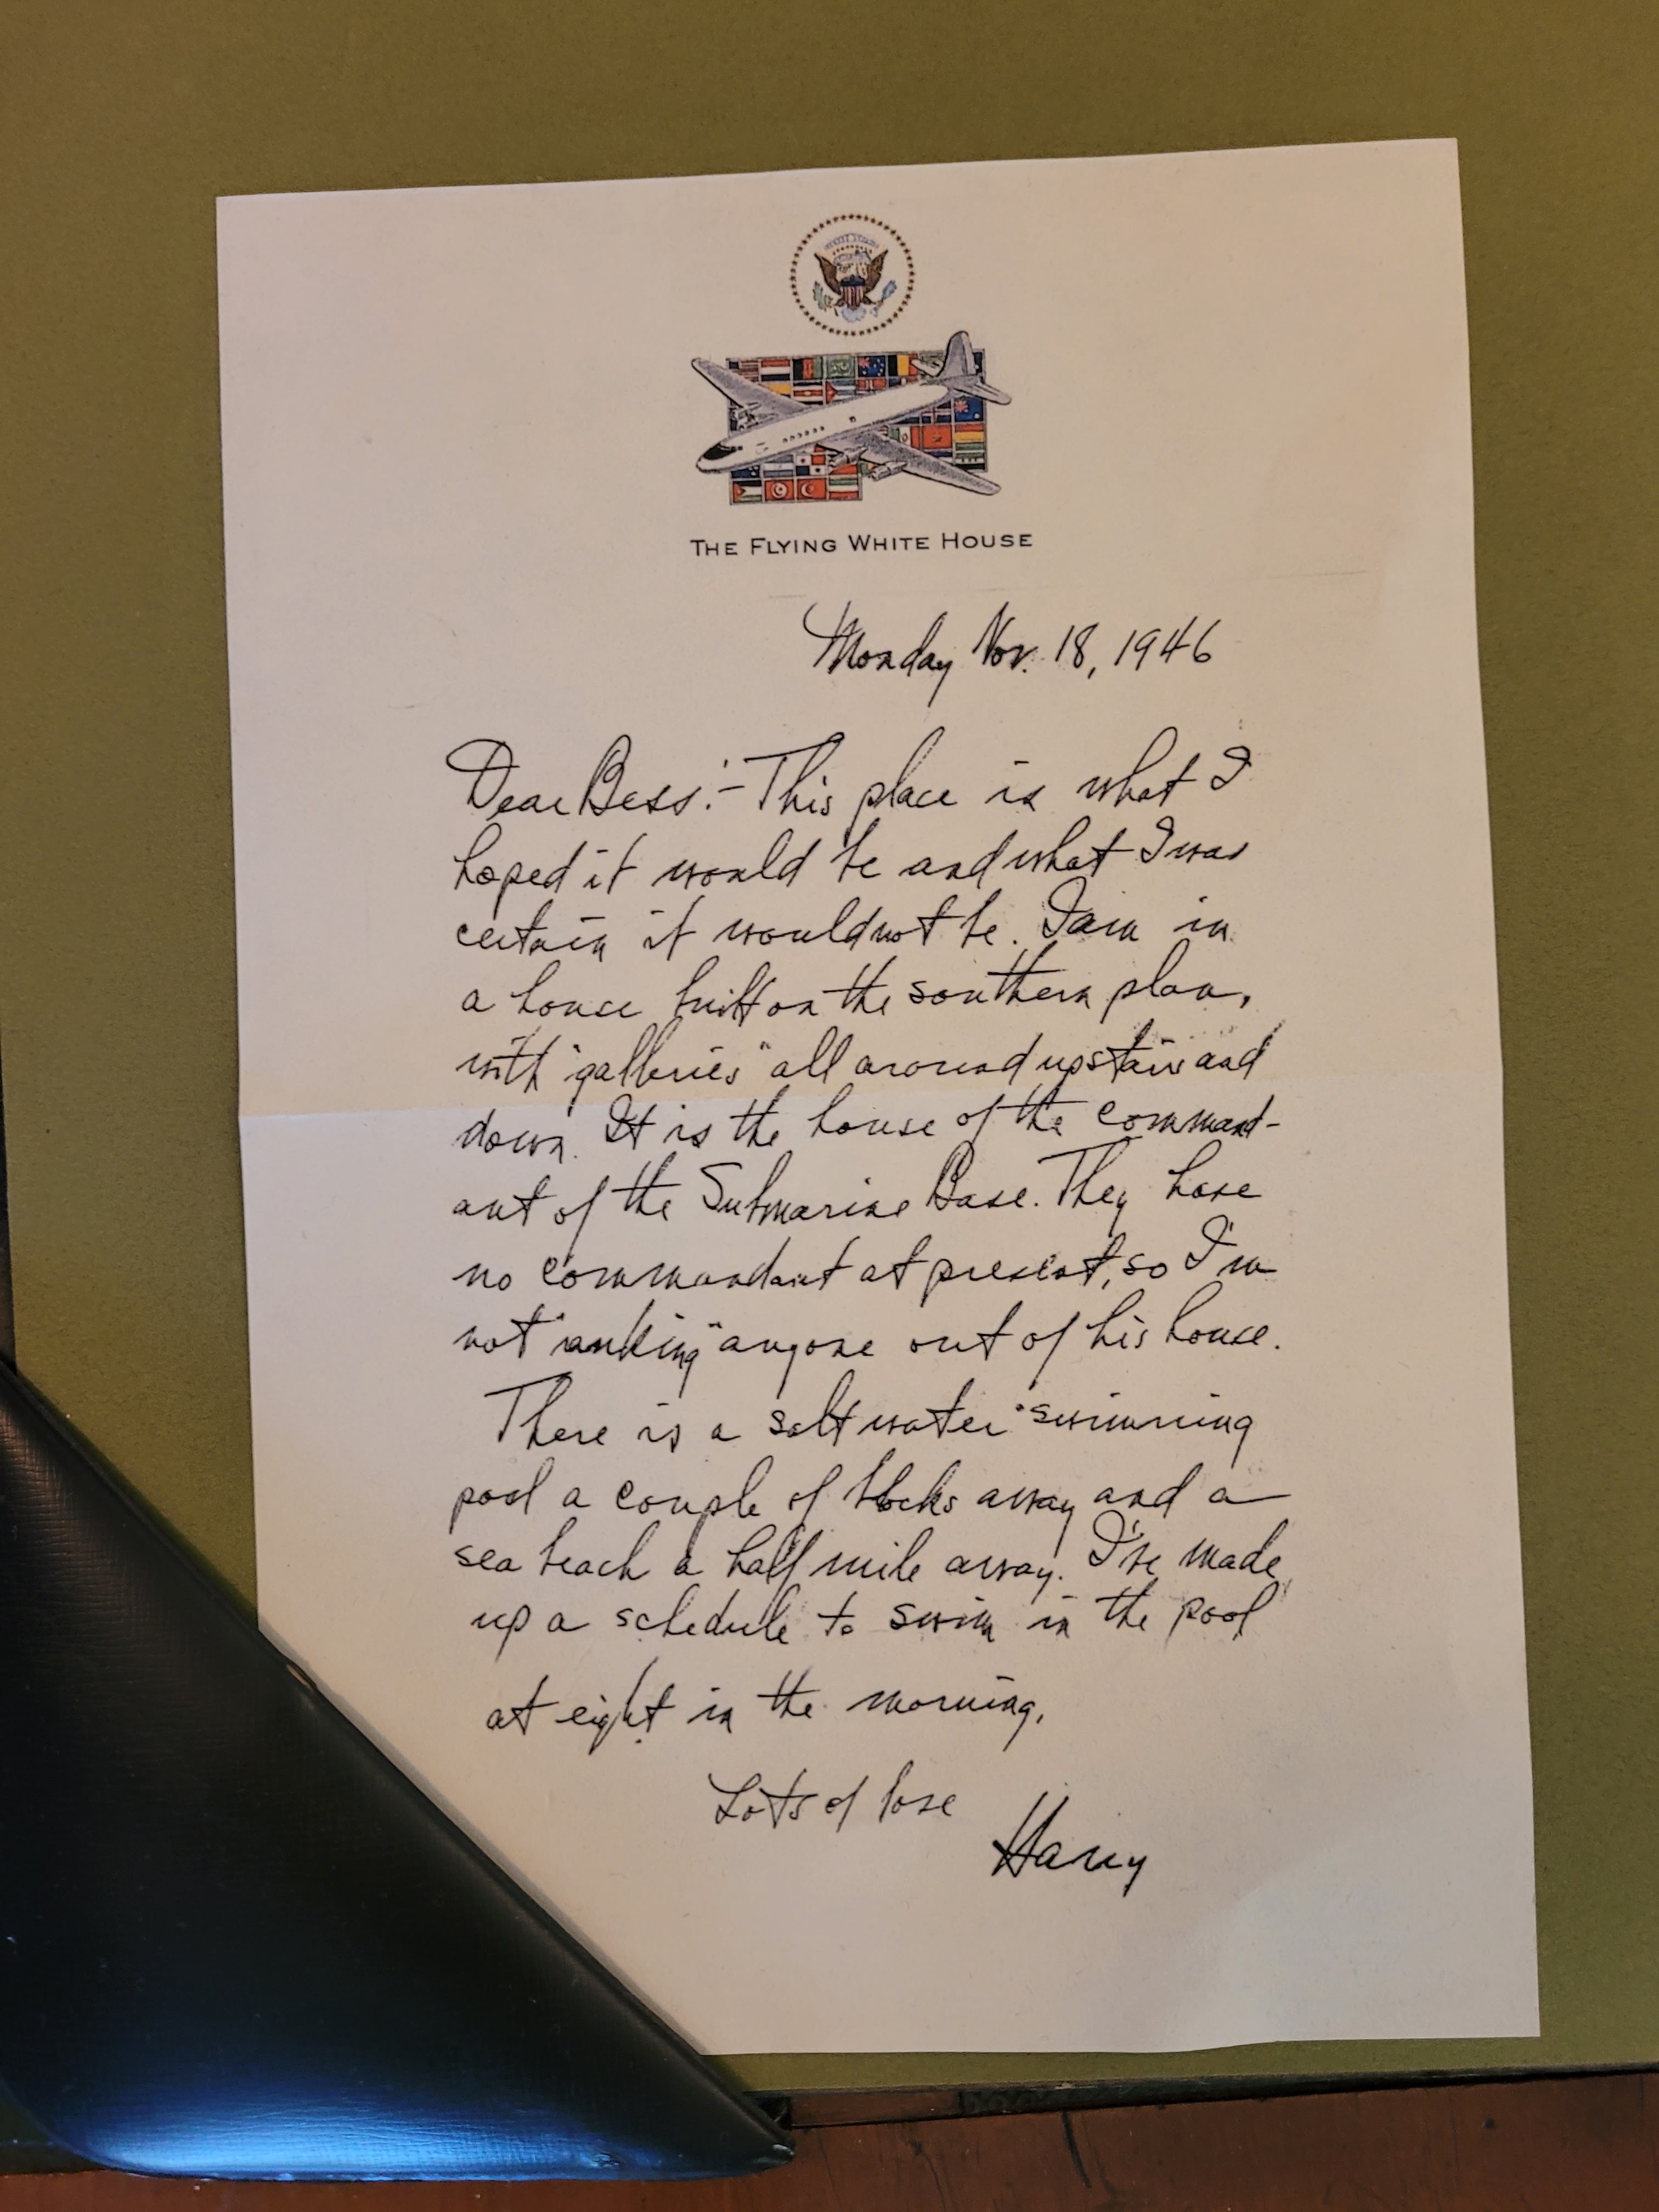 THE FLYING WHITE HOUSE
Monday Nov. 18, 1946
Dear Bess:- This place is what I
hoped it would be and what I was
certain it would not be. I am in
a house built on the southern plan,
with "galleries" all around upstairs and
down. It is the house of the command-
ant of the Submarine Base. They have
no commandant at present, so I'm
not "ranking" anyone out of his house.
There is a salt water swimming
pool a couple of blocks away and a
sea beach a half mile away. I've made
up a schedule to swim in the pool
at eight in the morning.
Lots of love
Harry